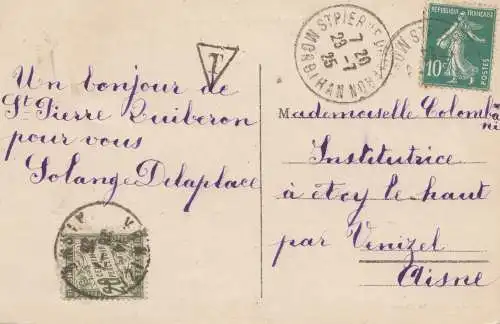 Un bonjour de
St Pierre Quiberon
pour vous
Solange Delaplace
T
ST PIERRE
7 20
23 -7
25
MORBIHAN
REPUBLIQUE FRANÇAISE
10c
POSTES
Mademoiselle Colomb
Institutrice
à
le haut
par Venizel
Aisne
20